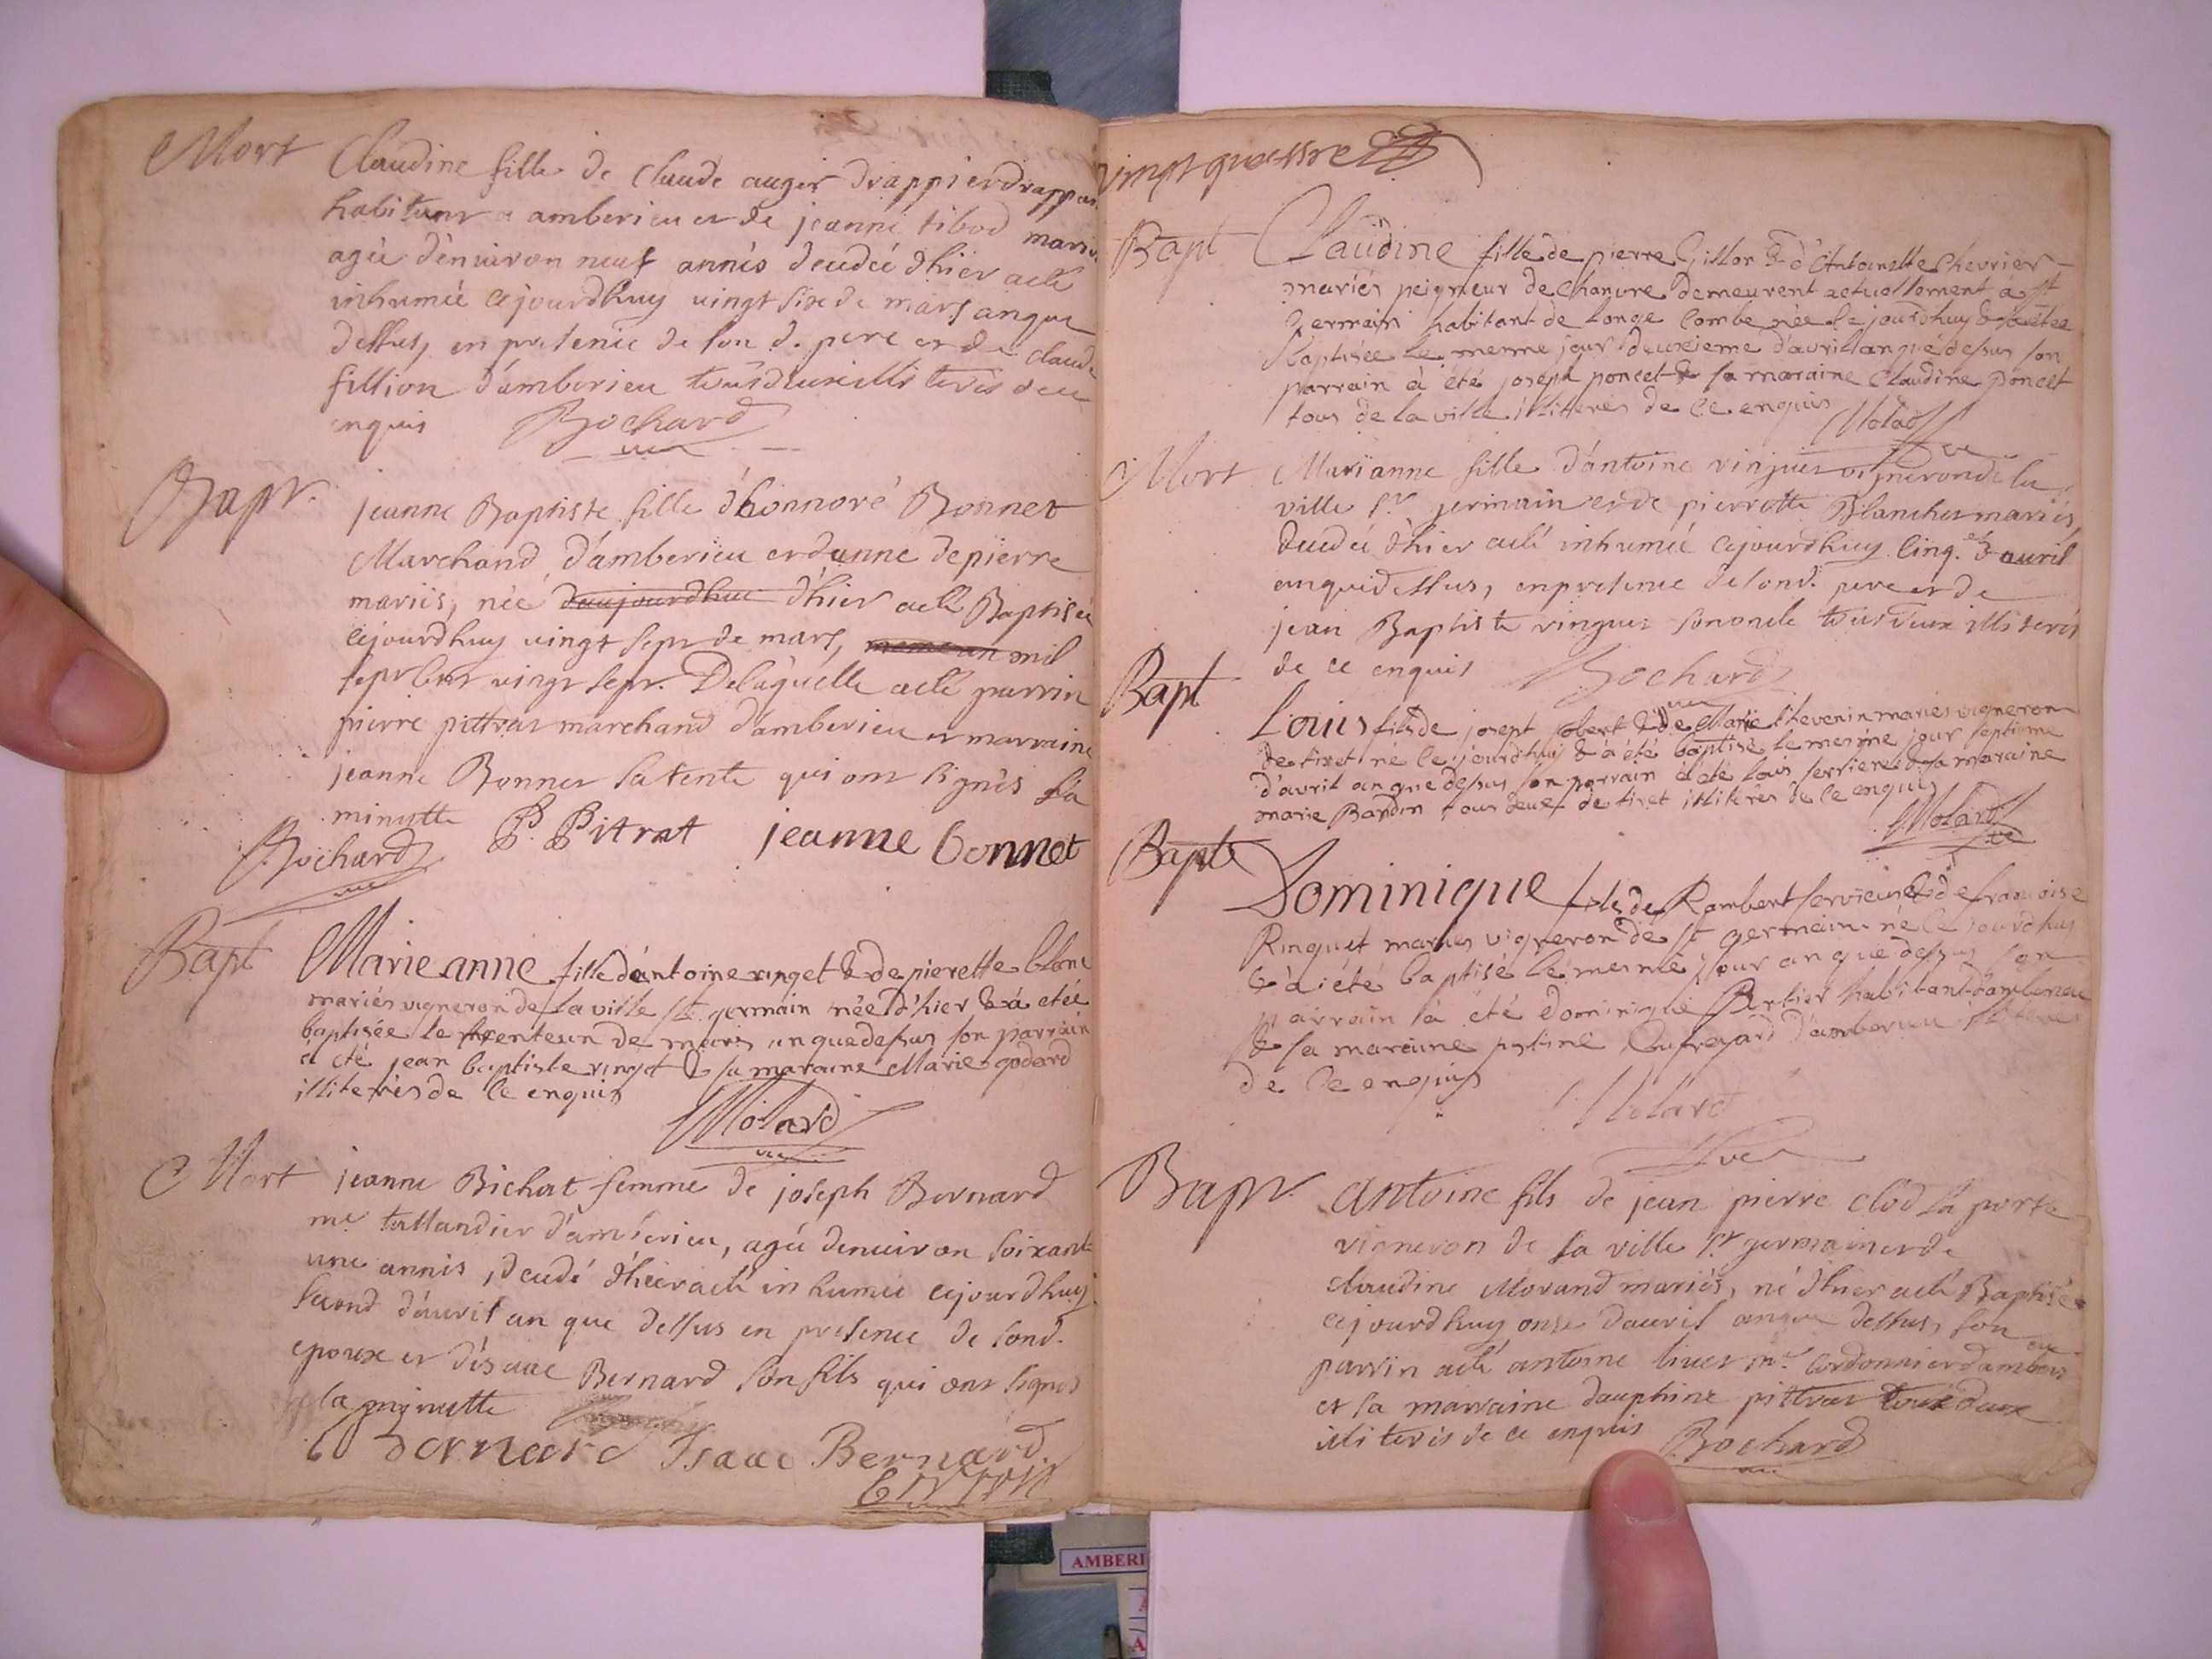 Mort
Claudine fille de Claude auger drappier drappier
habitant a amberieu et de jeanne tibod mariés
agée d'environ neuf annés decedée d'hier a eté
inhumée cejourdhuy vingt six de mars an que
dessus, en presence de son d. pere et de claude
fillion d'amberieu tous deux illiterés de ce
enquis Bochard
Bapt.
jeanne Baptiste fille d'honnoré Bonnet
Marchand d'amberieu et d'anne depierre
mariés, née daujourdhui d'hier a eté Baptisée
cejourdhuy vingt sept de mars, mil
sept cent vingt sept. De laquelle a eté parrin
pierre pittrat marchand d'amberieu et marraine
jeanne Bonnet sa tente qui ont signés sla
minutte
P. Pitrat jeanne bonnet
Bochard
Bapt
Marie anne fille d'antoine ringet & de pierette blanc
mariés vigneron de la ville st germain née d'hier & a etée
baptisée le trenteun de mars an que dessus son parrain
a eté jean baptiste ringet & sa maraine Marie godard
illiterés de ce enquis
Molard
Mort
jeanne Bichat femme de joseph Bernard
me tallandier d'amberieu, agée denviron soixante
une annés, decedé d'hier a eté inhumée cejourdhuy
second d'avril an que dessus en presence de sond.
epoux et d'isaac Bernard son fils qui ont signés
la minutte
bernard Isaac Bernard
vingt quattre
Bapt
Claudine fille de pierre Gillor & d'Antoinette Chevrier
mariés peigneur de chanvre demeurent actuellement a st
germain habitant de longe combe née le jourdhuy & a etée
Baptisée le mesme jour deuxieme d'avril an que dessus son
parrain à été joseph poncet & sa maraine Claudine poncet
tous de la ville illiterés de ce enquis Molard
Mort
Marianne fille d'antoine ringuet vigneron de la
ville st germain et de pierrette Blanchet mariés,
decedée d'hier a eté inhumée cejourdhuy cinq. d'avril
an que dessus, en presence de sond. pere et de
jean Baptiste ringuet son oncle tous deux illiterés
de ce enquis Bochard
Bapt
Louis fils de josept jobert & de Marie thevenin mariés vigneron
de tiret né le jourdhui & a été baptisé le mesme jour septieme
d'avril an que dessus son parrain à eté louis ferriere & sa maraine
marie Bardin tous deux de tiret illiterés de ce enquis
Molard
Bapte
Dominique fils de Rambert servieux & de francoise
Ringuet mariés vigneron de st germain né le jourdhui
& a été baptisé le mesme jour an que dessus son
parrain a été dominique Bertier habitant d'amberieu
& sa maraine d'amberieu
de ce enquis
Molard
Bapt.
antoine fils de jean pierre clod la porte
vigneron de la ville st germain et de
claudine Morand mariés, né d'hier a eté Baptisé
cejourdhuy onze d'avril an que dessus, son
parrin a eté antoine livet me cordonnier d'amberieu
et sa marraine dauphine pittrat tous deux
illiterés de ce enquis Bochard
AMBERI